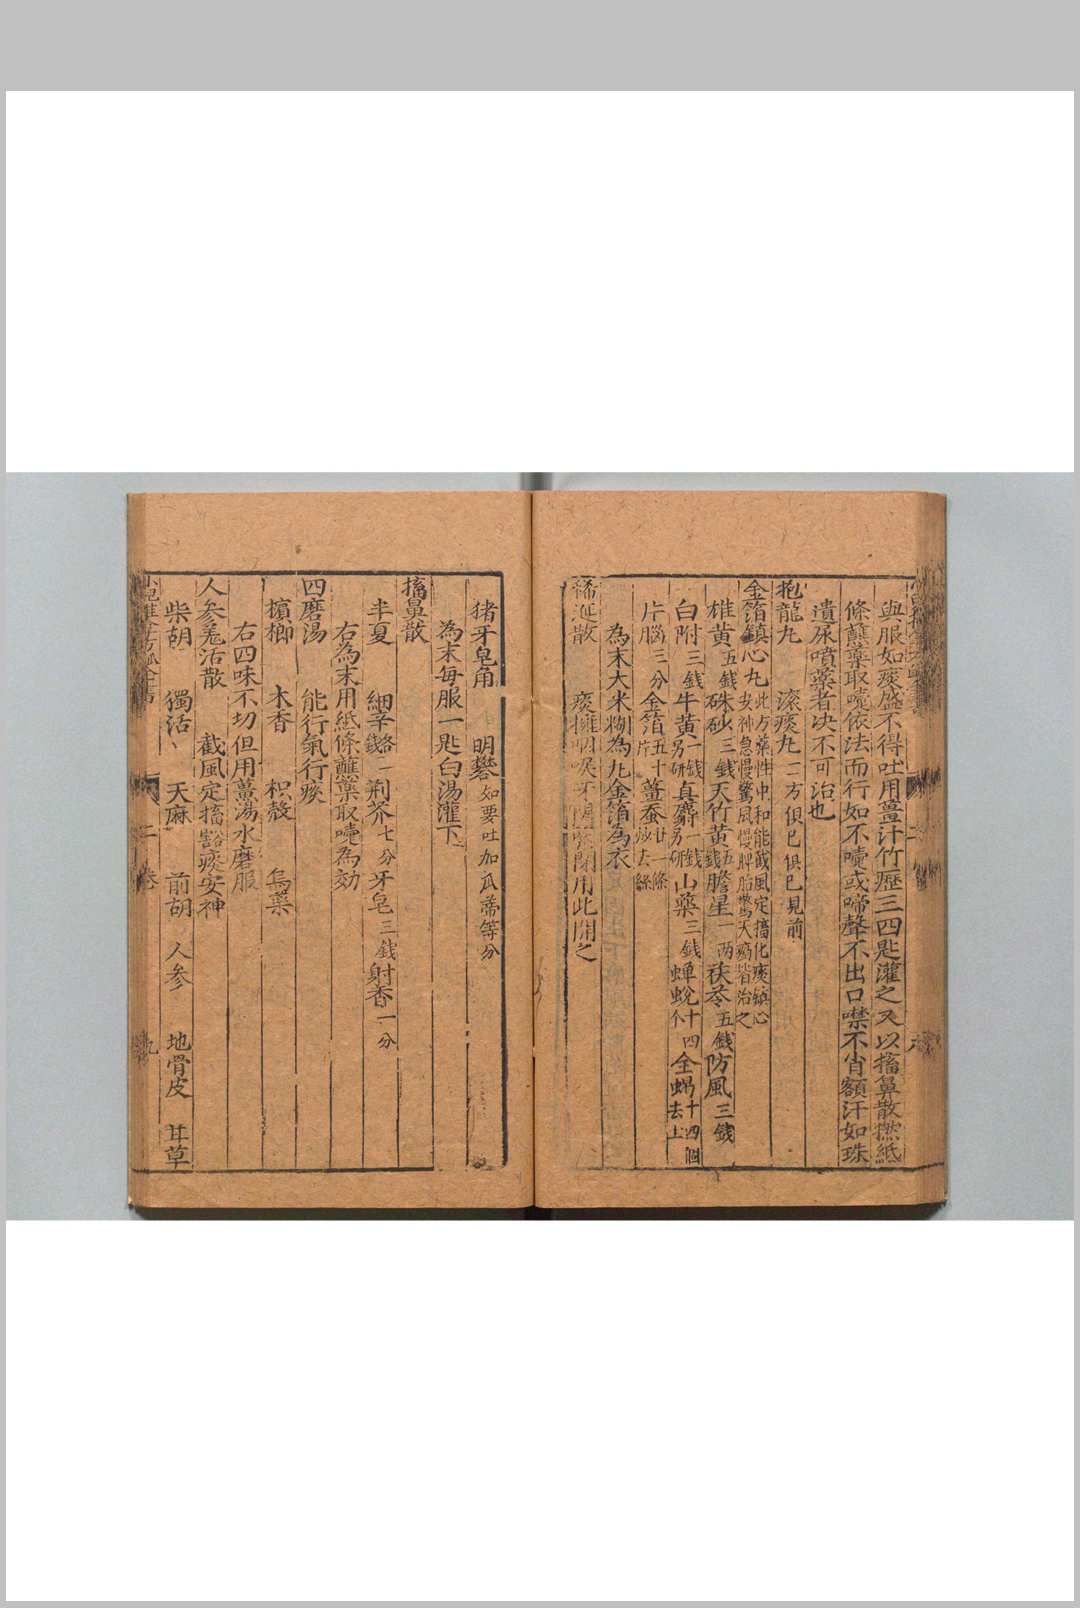 與服如痰盛不得吐用薑汁竹瀝三四匙灌之又以搐鼻散撚紙
條蘸藥取嚏依法而行如不嚏或啼聲不出口噤不省額汗如珠
遺尿噴藥者决不可治也
抱龍丸 滚痰丸 二方俱已俱已見前
金箔鎮心丸 此方藥性中和能截風定搐化痰鎮心
安神急慢驚風慢脾胎驚天瘹皆治之
雄黄五錢硃砂三錢天竹黄五錢膽星一兩茯苓五錢防風三錢
白附三錢牛黄一錢另研真麝一錢另研山藥三錢蟬蛻十四个全蝎十四個去土
片腦三分金箔五十片薑蚕廿一條炒去絲
為末大米糊為丸金箔為衣
稀涎散 痰擁咽喉牙 閉用此開之
猪牙皂角 明礬 如要吐加瓜蒂等分
為末每服一匙白湯灌下
搐鼻散
半夏 細辛各一錢 荆芥七分牙皂三錢射香一分
右為末用紙條蘸藥取嚏為効
四磨湯 能行氣行痰
檳榔 木香 枳殼 烏藥
右四味不切但用薑湯水磨服
人參羗活散 截風定搐豁痰安神
柴胡 獨活 天麻 前胡 人參 地骨皮 甘草
二卷 九